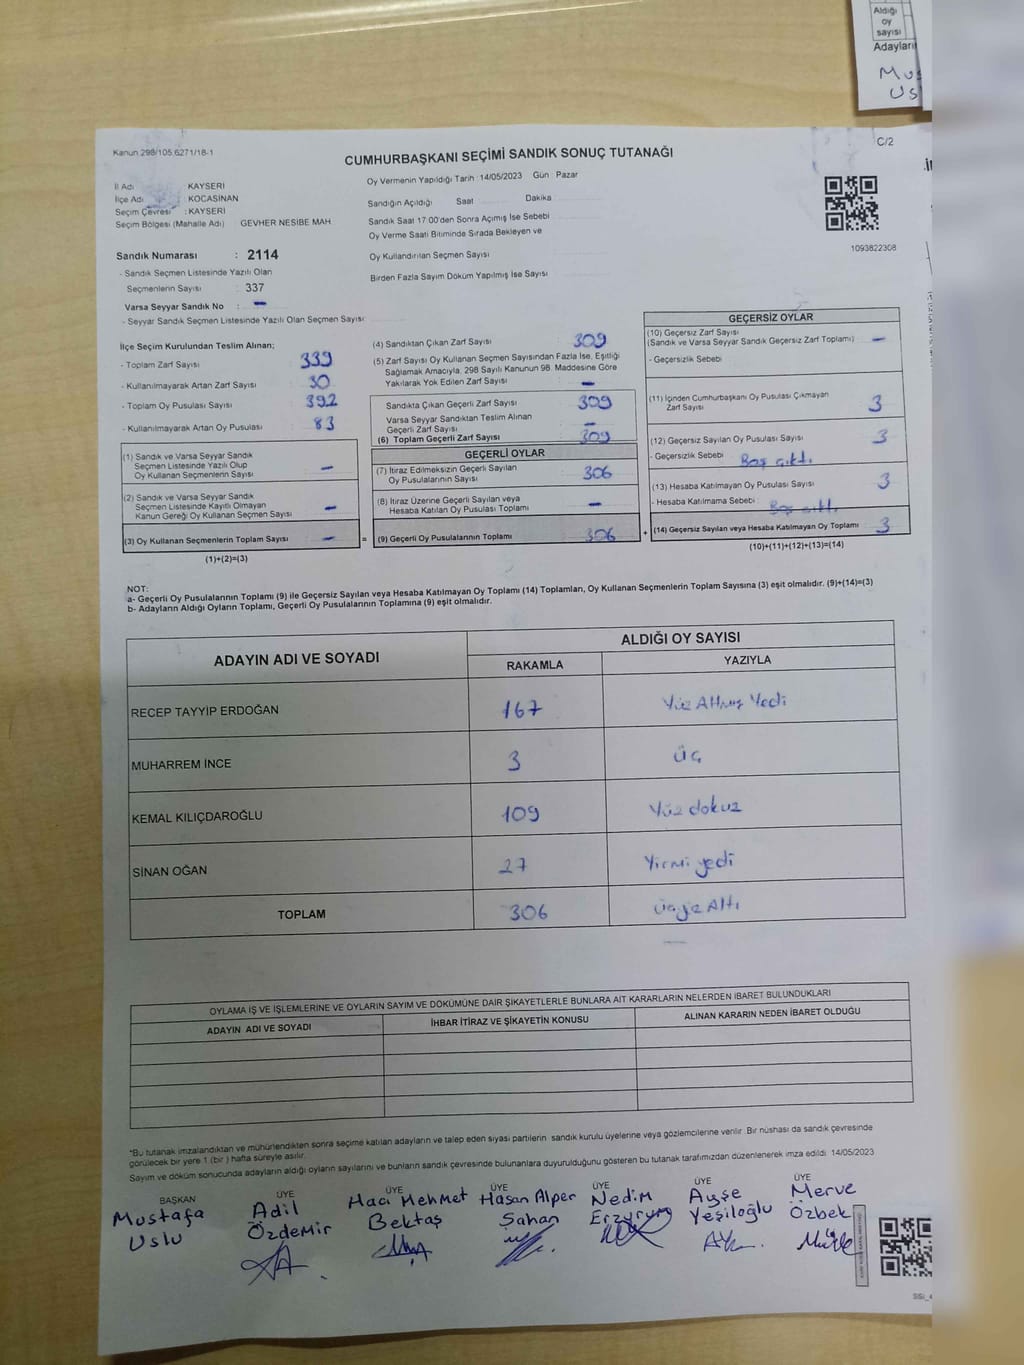 Aldığı
oy
sayısı
Adayların
Mus
Us
Kanun 298/105.6271/18-1
C/2
CUMHURBAŞKANI SEÇİMİ SANDIK SONUÇ TUTANAĞI
İl Adı : KAYSERİ
İlçe Adı : KOCASİNAN
Seçim Çevresi : KAYSERİ
Seçim Bölgesi (Mahalle Adı) GEVHER NESİBE MAH.
Oy Vermenin Yapıldığı Tarih :14/05/2023 Gün : Pazar
Sandığın Açıldığı Saat Dakika
Sandık Saat 17:00'den Sonra Açılmış İse Sebebi
Oy Verme Saati Bitiminde Sırada Bekleyen ve
Oy Kullandırılan Seçmen Sayısı
Birden Fazla Sayım Döküm Yapılmış İse Sayısı
1093822308
Sandık Numarası : 2114
- Sandık Seçmen Listesinde Yazılı Olan
Seçmenlerin Sayısı : 337
Varsa Seyyar Sandık No : -
- Seyyar Sandık Seçmen Listesinde Yazılı Olan Seçmen Sayısı
İlçe Seçim Kurulundan Teslim Alınan;
- Toplam Zarf Sayısı 339
- Kullanılmayarak Artan Zarf Sayısı 30
- Toplam Oy Pusulası Sayısı 392
- Kullanılmayarak Artan Oy Pusulası 83
(1) Sandık ve Varsa Seyyar Sandık
Seçmen Listesinde Yazılı Olup
Oy Kullanan Seçmenlerin Sayısı -
(2) Sandık ve Varsa Seyyar Sandık
Seçmen Listesinde Kayıtlı Olmayan
Kanun Gereği Oy Kullanan Seçmen Sayısı -
(3) Oy Kullanan Seçmenlerin Toplam Sayısı -
(1)+(2)=(3)
(4) Sandıktan Çıkan Zarf Sayısı 309
(5) Zarf Sayısı Oy Kullanan Seçmen Sayısından Fazla İse, Eşitliği
Sağlamak Amacıyla, 298 Sayılı Kanunun 98. Maddesine Göre
Yakılarak Yok Edilen Zarf Sayısı -
Sandıkta Çıkan Geçerli Zarf Sayısı 309
Varsa Seyyar Sandıktan Teslim Alınan
Geçerli Zarf Sayısı -
(6) Toplam Geçerli Zarf Sayısı 309
GEÇERLİ OYLAR
(7) İtiraz Edilmeksizin Geçerli Sayılan
Oy Pusulalarının Sayısı 306
(8) İtiraz Üzerine Geçerli Sayılan veya
Hesaba Katılan Oy Pusulası Toplamı -
= (9) Geçerli Oy Pusulalarının Toplamı 306 +
GEÇERSİZ OYLAR
(10) Geçersiz Zarf Sayısı
(Sandık ve Varsa Seyyar Sandık Geçersiz Zarf Toplamı) -
- Geçersizlik Sebebi
(11) İçinden Cumhurbaşkanı Oy Pusulası Çıkmayan
Zarf Sayısı 3
(12) Geçersiz Sayılan Oy Pusulası Sayısı 3
- Geçersizlik Sebebi Boş çıktı
(13) Hesaba Katılmayan Oy Pusulası Sayısı 3
- Hesaba Katılmama Sebebi Boş çıktı
(14) Geçersiz Sayılan veya Hesaba Katılmayan Oy Toplamı 3
(10)+(11)+(12)+(13)=(14)
NOT:
a- Geçerli Oy Pusulalarının Toplamı (9) ile Geçersiz Sayılan veya Hesaba Katılmayan Oy Toplamı (14) Toplamları, Oy Kullanan Seçmenlerin Toplam Sayısına (3) eşit olmalıdır. (9)+(14)=(3)
b- Adayların Aldığı Oyların Toplamı, Geçerli Oy Pusulalarının Toplamına (9) eşit olmalıdır.
ADAYIN ADI VE SOYADI ALDIĞI OY SAYISI
RAKAMLA YAZIYLA
RECEP TAYYİP ERDOĞAN 167 Yüz Altmış Yedi
MUHARREM İNCE 3 Üç
KEMAL KILIÇDAROĞLU 109 Yüz dokuz
SİNAN OĞAN 27 Yirmi yedi
TOPLAM 306 Üçyüz Altı
OYLAMA İŞ VE İŞLEMLERİNE VE OYLARIN SAYIM VE DÖKÜMÜNE DAİR ŞİKAYETLERLE BUNLARA AİT KARARLARIN NELERDEN İBARET BULUNDUKLARI
ADAYIN ADI VE SOYADI İHBAR İTİRAZ VE ŞİKAYETİN KONUSU ALINAN KARARIN NEDEN İBARET OLDUĞU
*Bu tutanak imzalandıktan ve mühürlendikten sonra seçime katılan adayların ve talep eden siyasi partilerin sandık kurulu üyelerine veya gözlemcilerine verilir. Bir nüshası da sandık çevresinde
görülecek bir yere 1 (bir) hafta süreyle asılır.
Sayım ve döküm sonucunda adayların aldığı oyların sayılarını ve bunların sandık çevresinde bulunanlara duyurulduğunu gösteren bu tutanak tarafımızdan düzenlenerek imza edildi. 14/05/2023
BAŞKAN ÜYE ÜYE ÜYE ÜYE ÜYE ÜYE
Mustafa Adil Hacı Mehmet Hasan Alper Nedim Ayşe Merve
Uslu Özdemir Bektaş Şahan Erzurum Yeşiloğlu Özbek